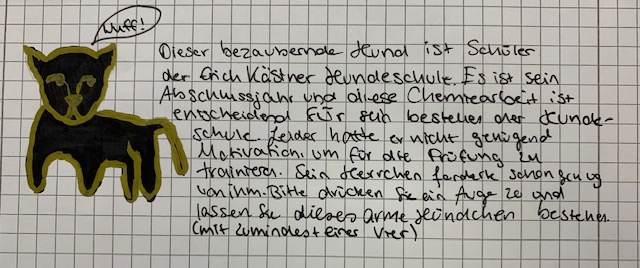 Wuff!
Dieser bezaubernde Hund ist Schüler
der Erich Kästner Hundeschule. Es ist sein
Abschlussjahr und diese Chemiearbeit ist
entscheidend für sein bestehen der Hunde-
schule. Leider hatte er nicht genügend
Motivation, um für die Prüfung zu
trainieren. Sein Herrchen forderte schon genug
von ihm. Bitte drücken Sie ein Auge zu und
lassen Sie dieses arme Hündchen bestehen.
(mit zumindest einer Vier)